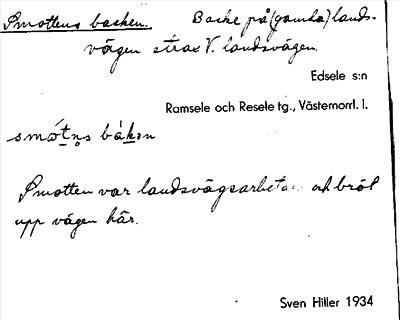 Smottens backen. Backe på (gamla) lands-
vägen strax V. landsvägen.
Edsele s:n
Ramsele och Resele tg., Västernorrl. l.
Smotten var landsvägsarbeta och bröt
upp vägen här.
Sven Hiller 1934